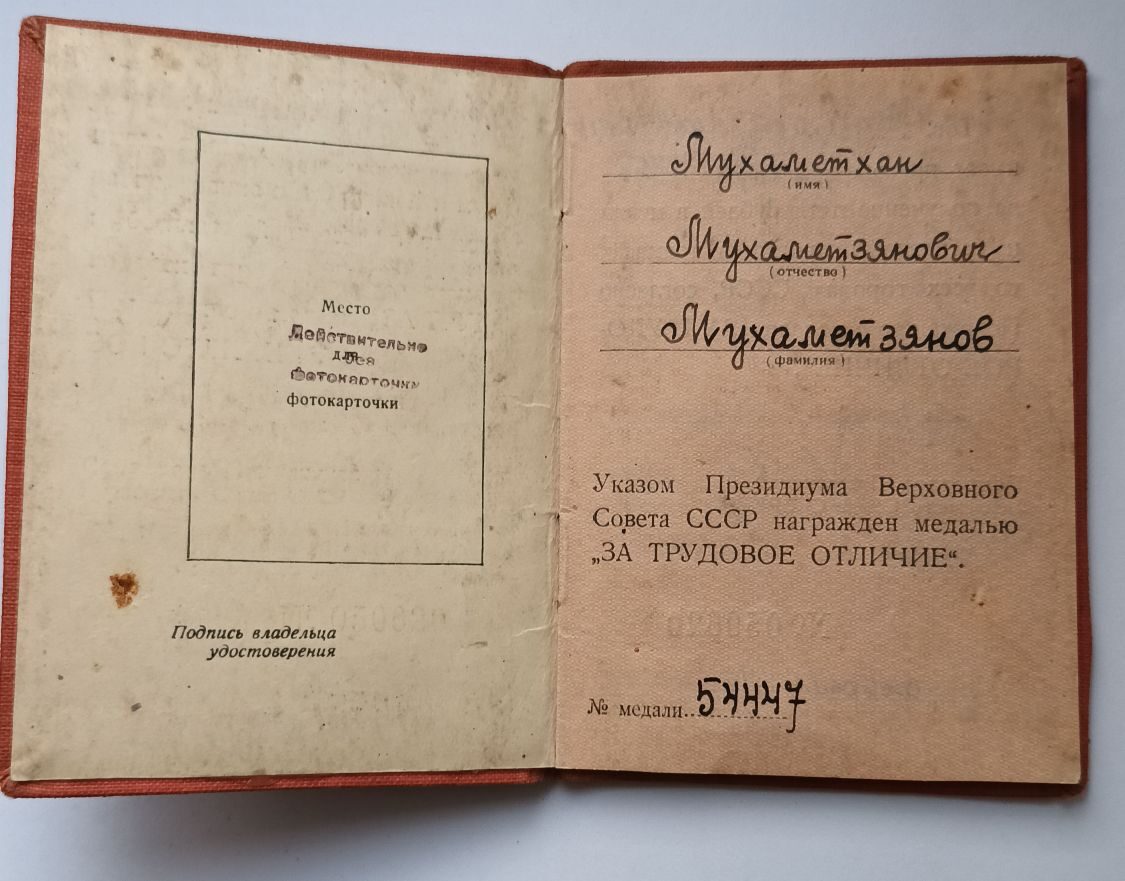 Место
Действительно
для
без
Фотокарточки
фотокарточки
Подпись владельца
удостоверения
Мухаметхан
(имя)
Мухаметзянович
(отчество)
Мухаметзянов
(фамилия)
Указом Президиума Верховного
Совета СССР награжден медалью
„ЗА ТРУДОВОЕ ОТЛИЧИЕ“.
№ медали..54447